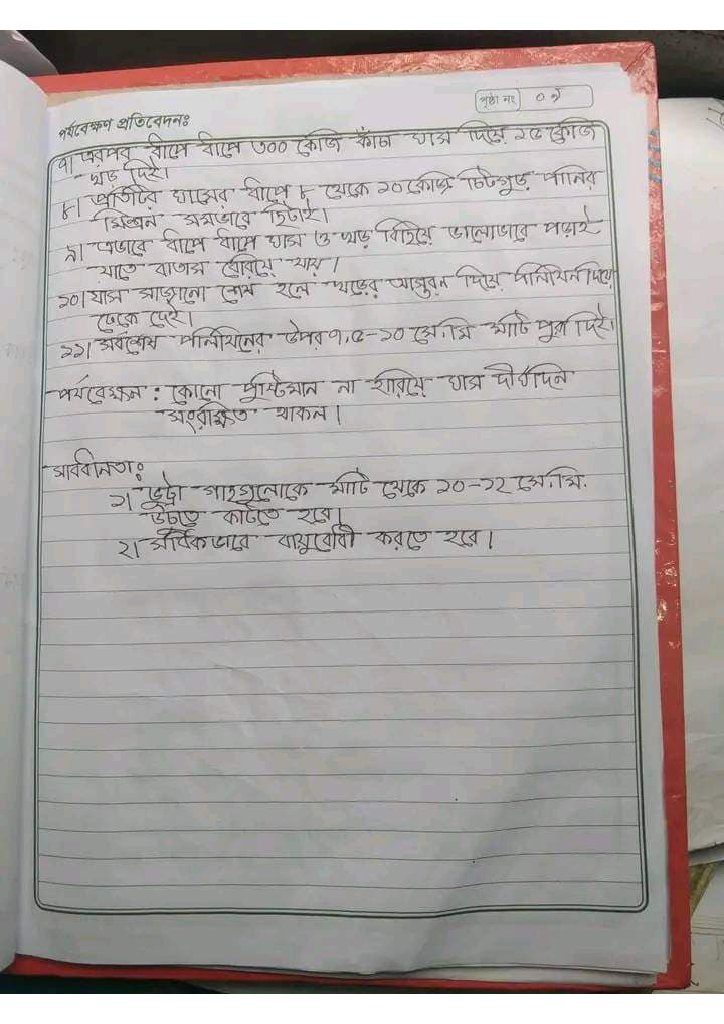 পৃষ্ঠা নং ০৭
পর্যবেক্ষণ প্রতিবেদনঃ
৭। এরপর ধাপে ধাপে ৩০০ কেজি কাঁচা ঘাস দিয়ে ১৫ কেজি
খড় দিই।
৮। প্রতিটি ঘাসের ধাপে ৮ থেকে ১০ কেজি চিটাগুড় পানির
মিশ্রন সমভাবে ছিটাই।
৯। এভাবে ধাপে ধাপে ঘাস ও খড় বিছিয়ে ভালোভাবে পড়াই
যাতে বাতাস বেরিয়ে যায়।
১০। ঘাস সাজানো শেষ হলে খড়ের আস্তরন দিয়ে পলিথিন দিয়ে
ঢেকে দেই।
১১। সর্বশেষ পলিথিনের উপর ৭.৫-১০ সে.মি মাটি পুরু দিই।
পর্যবেক্ষন : কোনো পুষ্টিমান না হারিয়ে ঘাস দীর্ঘদিন
সংরক্ষিত থাকল।
সাবধীনতাঃ
১। ভুট্টা গাছগুলোকে মাটি থেকে ১০-১২ সে.মি.
উঁচুতে কাটতে হবে।
২। সঠিকভাবে বায়ুরোধী করতে হবে।